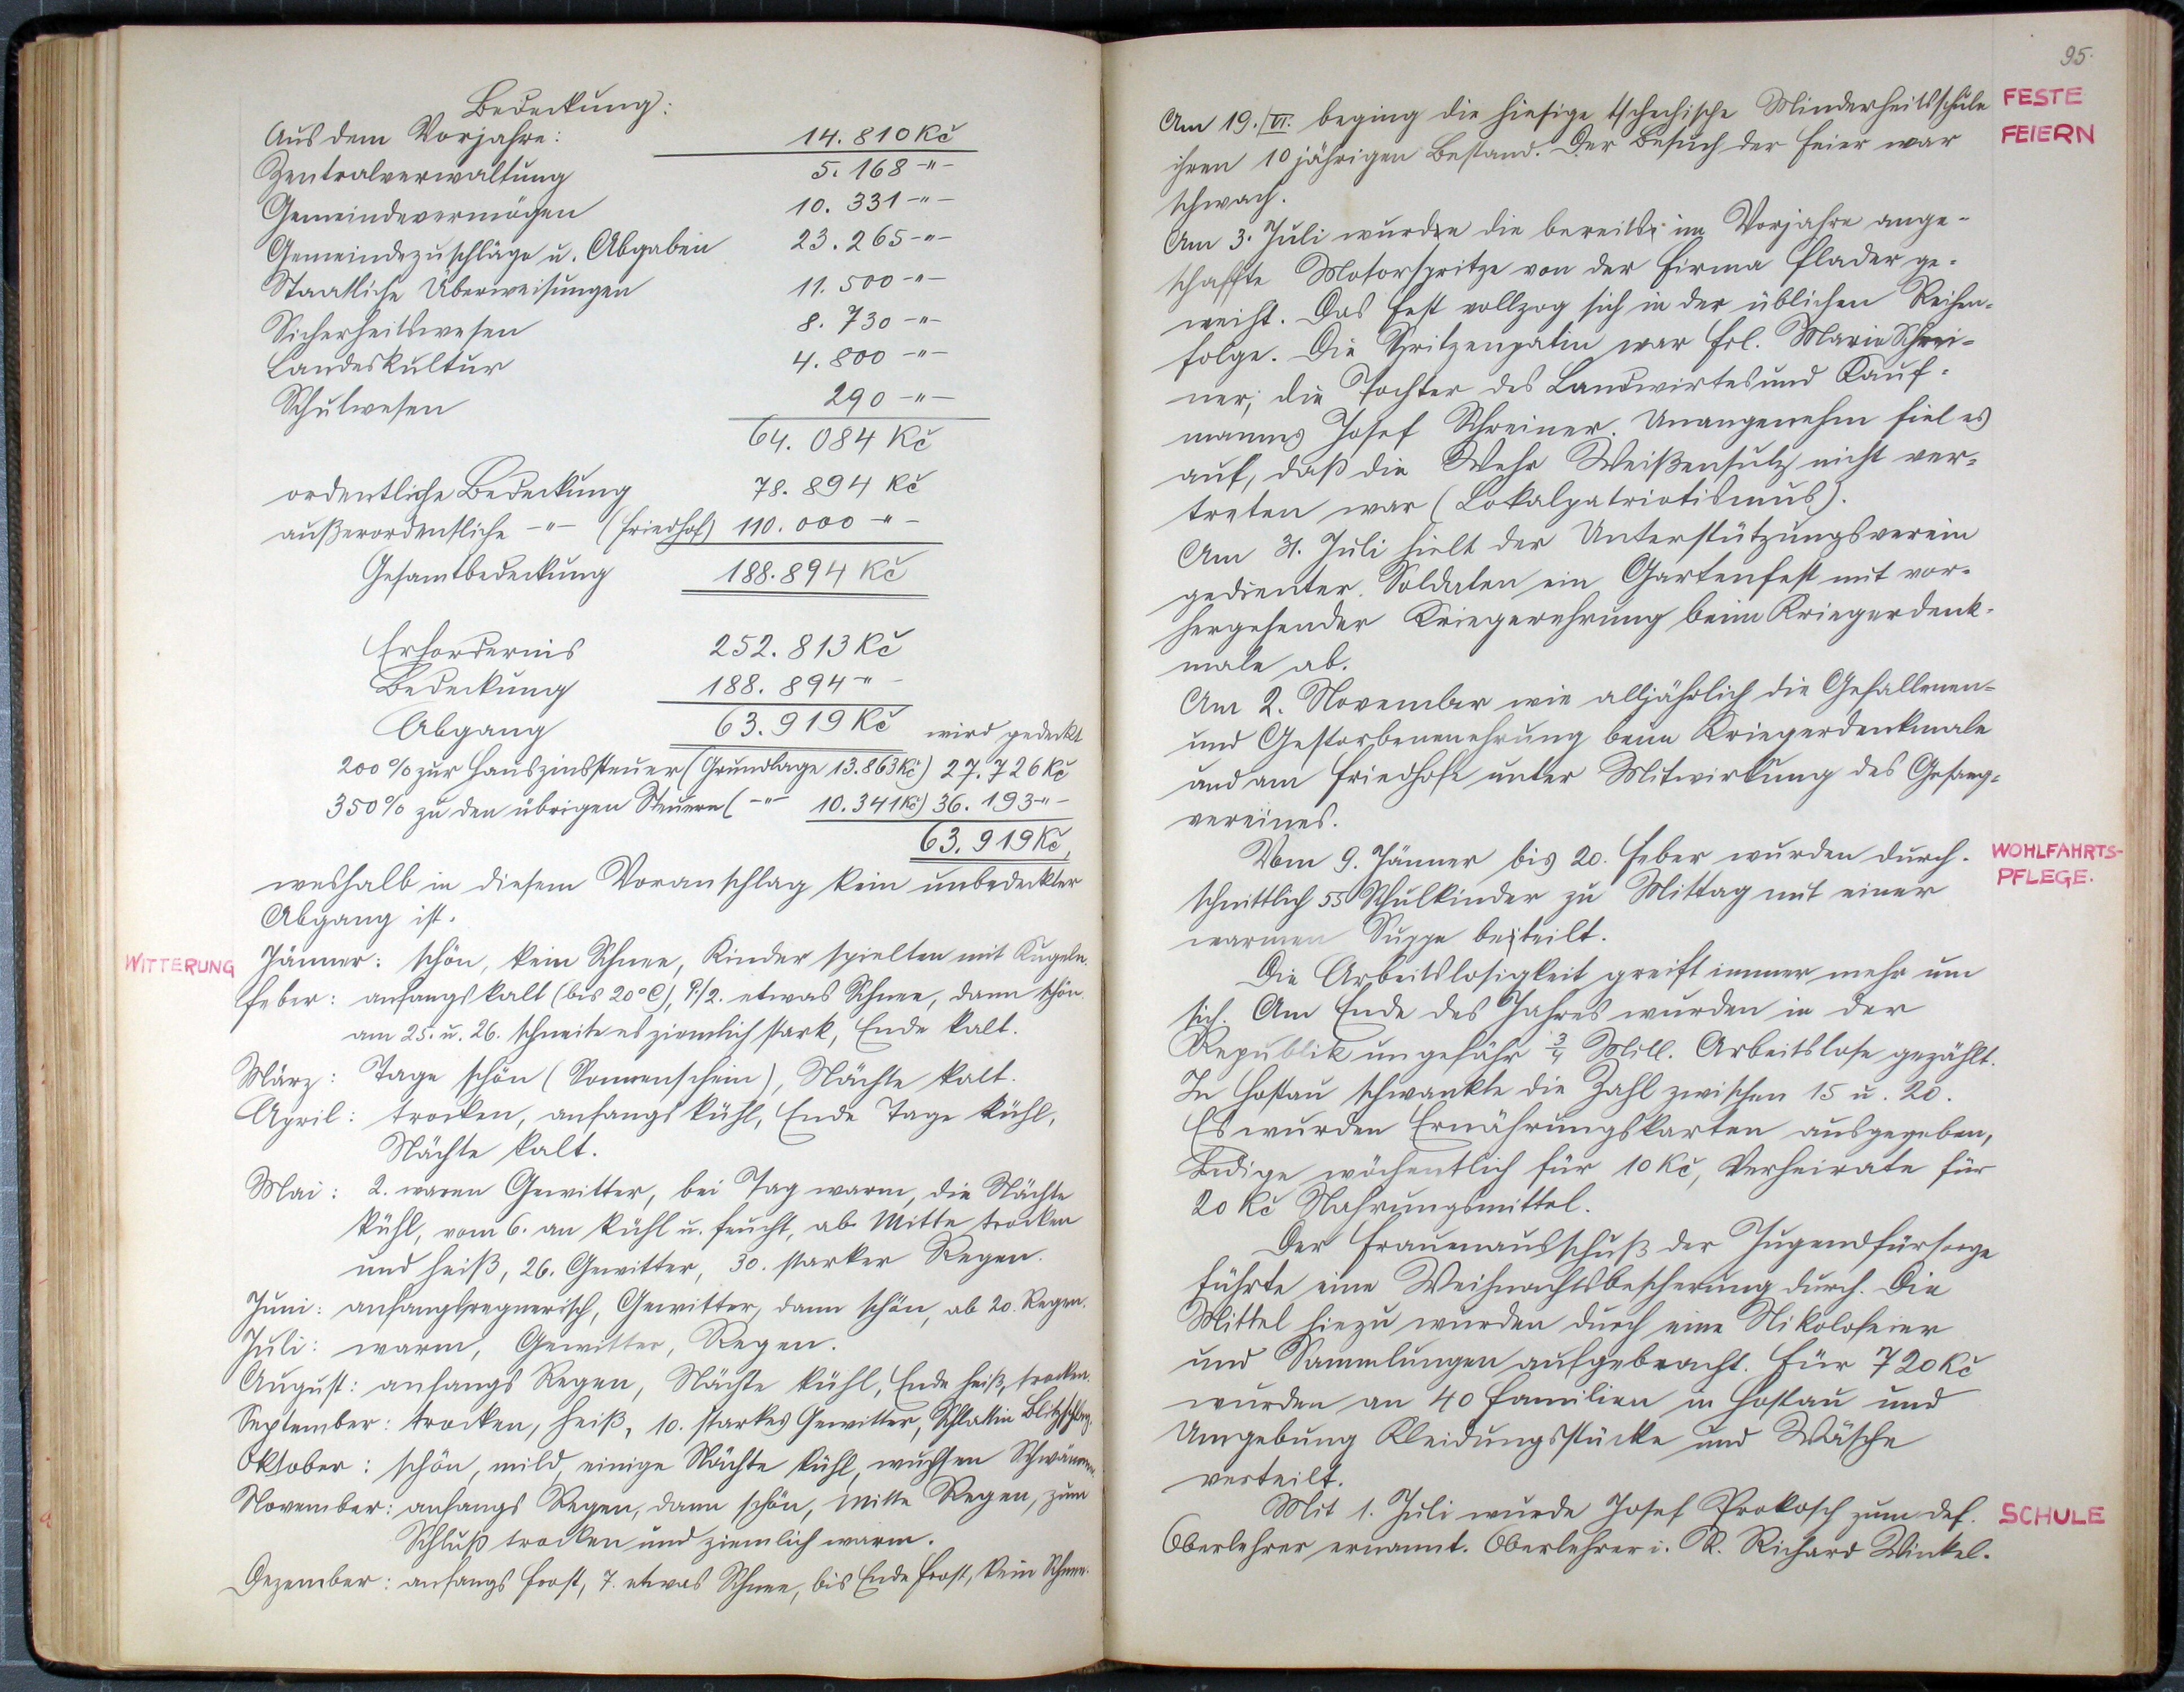 Bedeckung:
Aus dem Vorjahre: 14.810 Kč
Zentralverwaltung 5.168 -"-
Gemeindevermögen 10.331 -"-
Gemeindezuschläge u. Abgaben 23.265 -"-
Staatliche Überweisungen 11.500 -"-
Sicherheitswesen 8.730 -"-
Landeskultur 4.800 -"-
Schulwesen 290 -"-
64.084 Kč
ordentliche Bedeckung 78.894 Kč
außerordentliche -"- (Friedhof) 110.000 -"-
Gesamtbedeckung 188.894 Kč
Erfordernis 252.813 Kč
Bedeckung 188.894 -"-
Abgang 63.919 Kč wird gedeckt
200% zur Hauszinssteuer (Grundlage 13.863 Kč) 27.726 Kč
350% zu den übrigen Steuern ( -"- 10.341 Kč) 36.193 -"-
63.919 Kč,
weshalb in diesem Voranschlag kein unbedeckter
Abgang ist.
WITTERUNG
Jänner: schön, kein Schnee, Kinder spielten mit Kugeln.
Feber: anfangs kalt (bis 20° C), 9./2. etwas Schnee, dann schön.
am 25. u. 26. schneite es ziemlich stark, Ende kalt.
März: Tage schön (Sonnenschein), Nächte kalt.
April: trocken, anfangs kühl, Ende Tage kühl,
Nächte kalt.
Mai: 2. waren Gewitter, bei Tag warm, die Nächte
kühl, vom 6. an kühl u. feucht, ab Mitte trocken
und heiß, 26. Gewitter, 30. starker Regen.
Juni: anfangs regnerisch, Gewitter, dann schön, ab 20. Regen.
Juli: warm, Gewitter, Regen.
August: anfangs Regen, Nächte kühl, Ende heiß, trocken.
September: trocken, heiß, 10. starkes Gewitter, Schlattin Blitzschlag.
Oktober: schön, mild, einige Nächte kühl, wuchsen Schwämme.
November: anfangs Regen, dann schön, Mitte Regen, zum
Schluß trocken und ziemlich warm.
Dezember: anfangs Frost, 7. etwas Schnee, bis Ende Frost, kein Schnee.
95.
FESTE
FEIERN
Am 19./VI. beging die hiesige tschechische Minderheitsschule
ihren 10 jährigen Bestand. Der Besuch der Feier war
schwach.
Am 3. Juli wurde die bereits im Vorjahre ange-
schaffte Motorspritze von der Firma Flader ge-
weiht. Das Fest vollzog sich in der üblichen Reihen-
folge. Die Spritzenpatin war Frl. Marie Schrei-
ner, die Tochter des Landwirtes und Kauf-
mannes Josef Schreiner. Unangenehm fiel es
auf, daß die Wehr Weißensulz nicht ver-
treten war (Lokalpatriotismus).
Am 31. Juli hielt der Unterstützungsverein
gedienter Soldaten ein Gartenfest mit vor-
hergehender Kriegerehrung beim Kriegerdenk-
male ab.
Am 2. November wie alljährlich die Gefallenen-
und Gestorbenenehrung beim Kriegerdenkmale
und am Friedhofe unter Mitwirkung des Gesang-
vereines.
WOHLFAHRTS-
PFLEGE.
Vom 9. Jänner bis 20. Feber wurden durch-
schnittlich 55 Schulkinder zu Mittag mit einer
warmen Suppe beteilt.
Die Arbeitslosigkeit greift immer mehr um
sich. Am Ende des Jahres wurden in der
Republik ungefähr ¾ Mill. Arbeitslose gezählt.
In Hostau schwankte die Zahl zwischen 15 u. 20.
Es wurden Ernährungskarten ausgegeben,
Ledige wöchentlich für 10 Kč, Verheirate für
20 Kč Nahrungsmittel.
Der Frauenausschuß der Jugendfürsorge
führte eine Weihnachtsbescherung durch. Die
Mittel hiezu wurden durch eine Nikolofeier
und Sammlungen aufgebracht. Für 720 Kč
wurden an 40 Familien in Hostau und
Umgebung Kleidungsstücke und Wäsche
verteilt.
SCHULE
Mit 1. Juli wurde Josef Prokosch zum def.
Oberlehrer ernannt. Oberlehrer i. R. Richard Winkel-